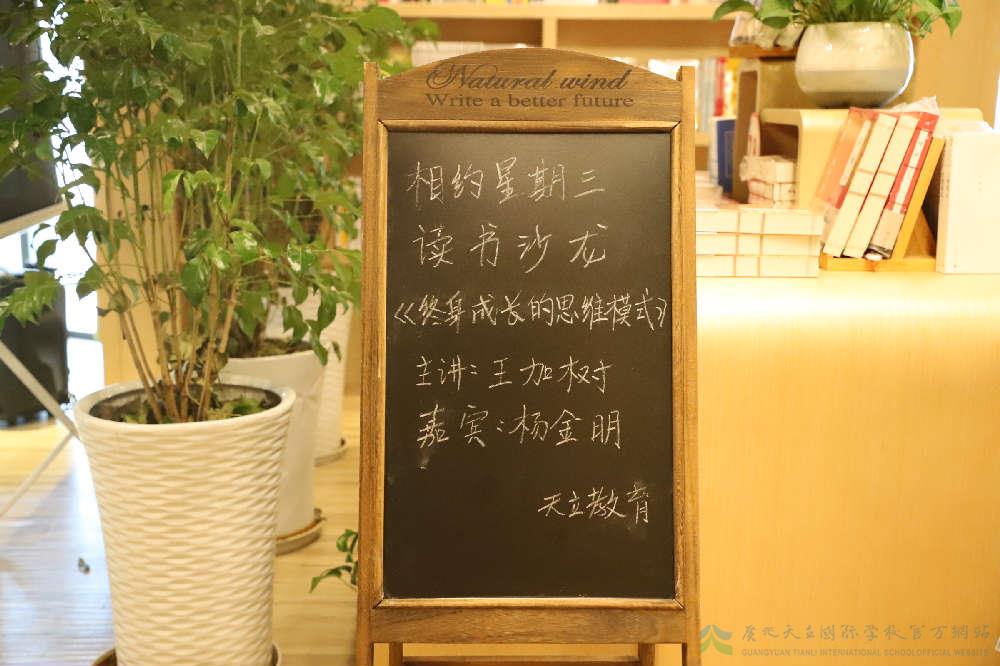 Natural wind
Write a better future
相约星期三
读书沙龙
《终身成长的思维模式》
主讲:王加树
嘉宾:杨金明
天立教育
广元天立國际学校官方網站
GUANGYUAN TIANLI INTERNATIONAL SCHOOLOFFICIAL WEBSITE